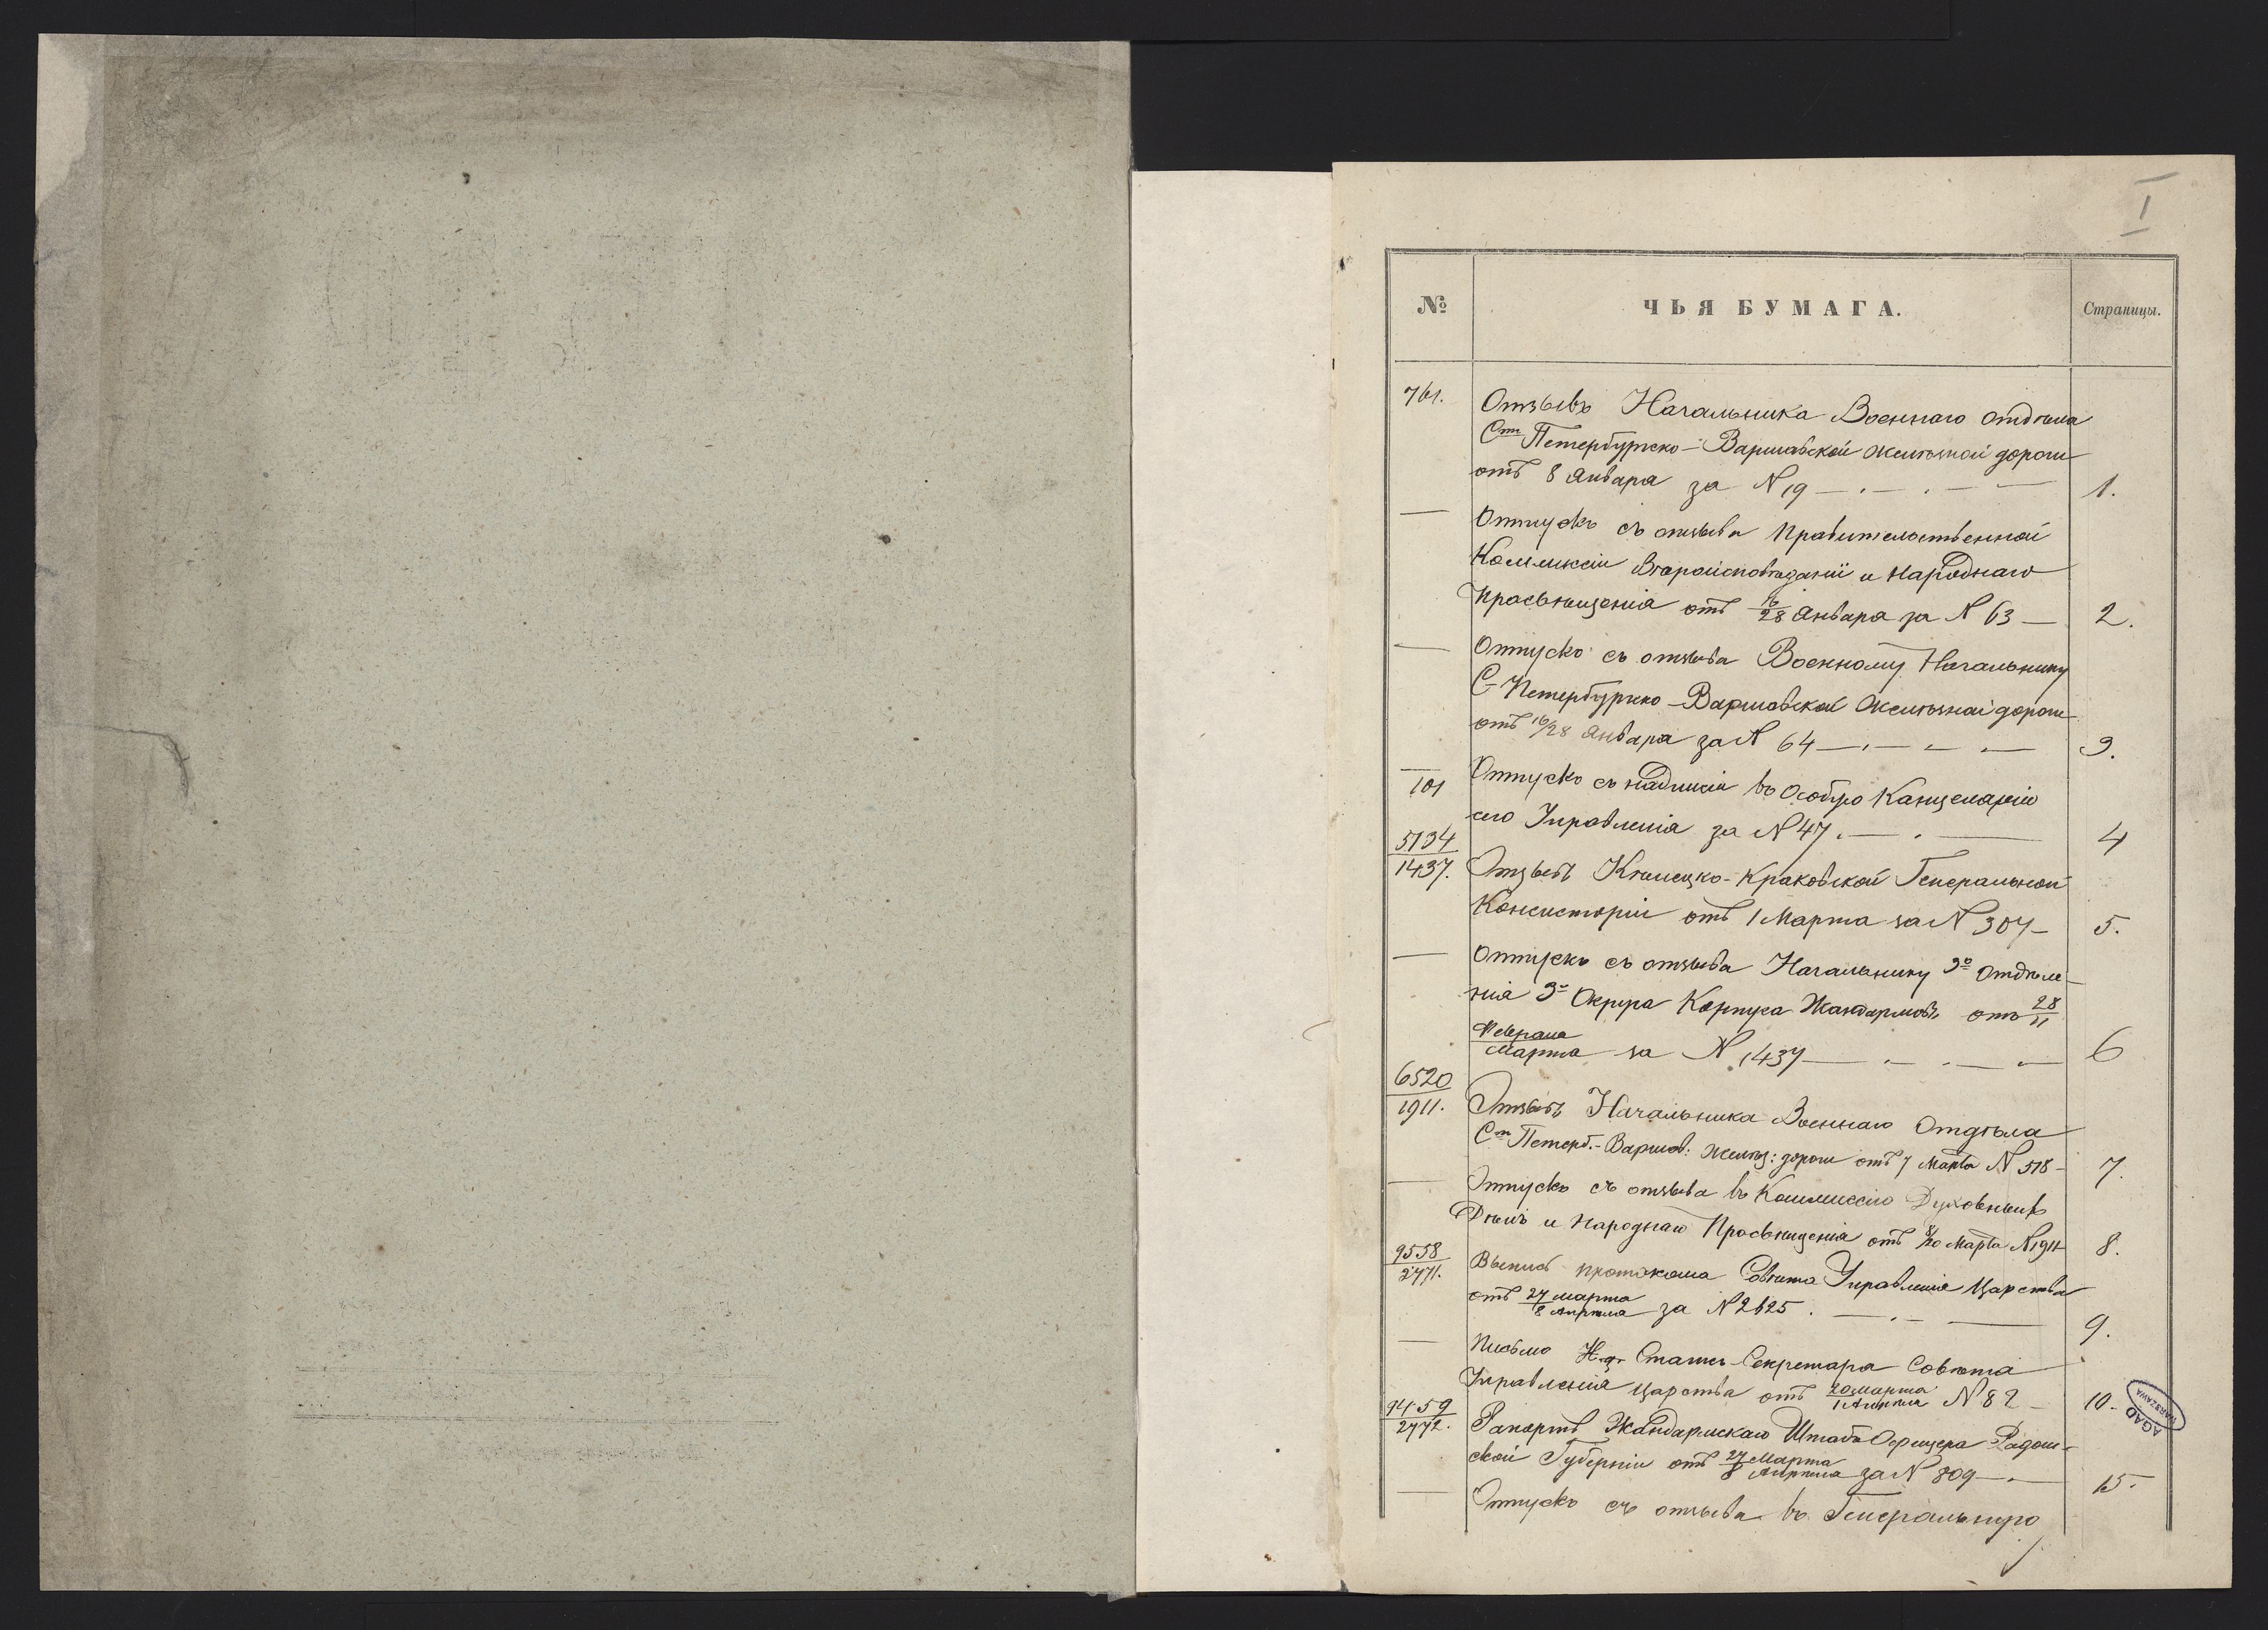 I
№ ЧЬЯ БУМАГА. Страницы.
761. Отзывъ Начальника Военнаго отдѣла
Стъ Петербурско-Варшавской желѣзной дороги
отъ 8 Января за N 19 — . — . — — 1.
— Отпускъ съ отзыва Правительственной
Коммиссіи Вѣроисповѣданій и Народнаго
Просвѣщенія отъ 16/28 Января за N 63 — 2.
— Отпускъ съ отзыва Военному Начальнику
С-Петербурско-Варшавской Желѣзной дороги
отъ 16/28 Января за N 64 — . — — — 3.
101 Отпускъ съ надписи въ Особую Канцелярію
сего Управленія за N 47. — . — 4
5134/1437. Отзывъ Кѣлецко-Краковской Генеральной
Консисторіи отъ 1 Марта за N 307 — 5.
— Отпускъ съ отзыва Начальнику 3о Отдѣле-
нія 3о Округа Корпуса Жандармовъ отъ 28/11
Февраля/Марта за N 1437 — . — . — 6
6520/1911. Отзывъ Начальника Военнаго Отдѣла
Стъ Петерб.-Варшав: желѣз: дороги отъ 7 Марта N 518 — 7.
— Отпускъ съ отзыва въ Коммиссію Духовныхъ
Дѣлъ и Народнаго Просвѣщенія отъ 8/20 Марта N 1911 8.
9558/2771. Выпись протокола Совѣта Управленія Царства
отъ 27 марта/8 Апрѣля за N 2625 . — . — — 9.
— Письмо И. д. Статсъ-Секретаря Совѣта
Управленія Царства отъ 20 марта/1 Апрѣля N 82 — 10.
9459/2772. Рапортъ Жандармскаго Штабъ Офицера Радом-
ской Губерніи отъ 27 Марта/8 Апрѣля за N 809 — . 15.
— Отпускъ съ отзыва въ Генеральную
AGAD
WARSZAWA